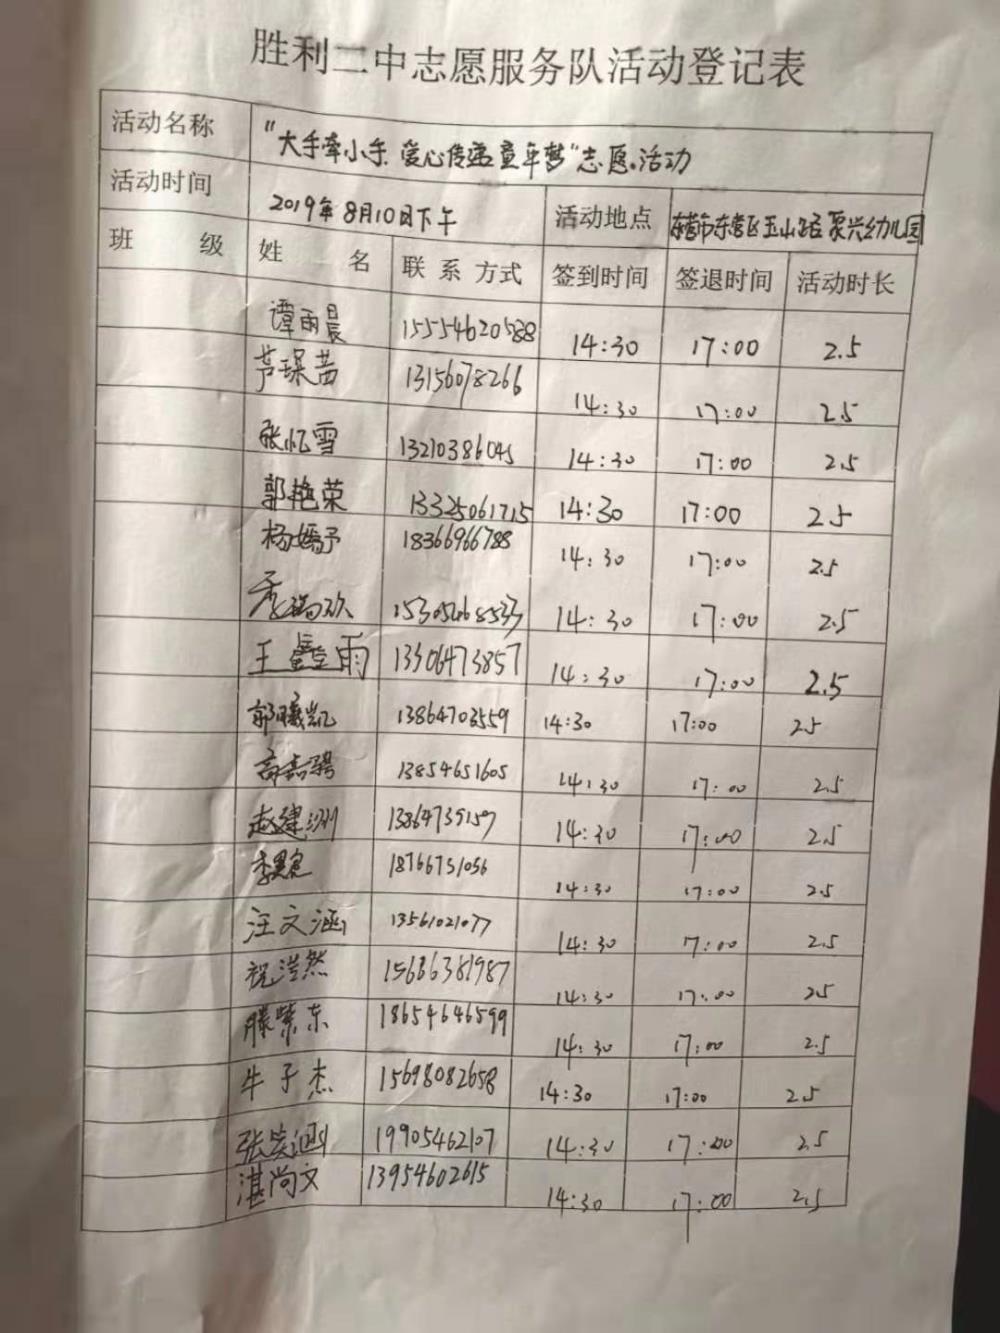 胜利二中志愿服务队活动登记表
活动名称 "大手牵小手.爱心传递童年梦"志愿活动
活动时间 2019年8月10日下午 活动地点 东营市东营区玉山路聚兴幼儿园
班 级 姓 名 联系方式 签到时间 签退时间 活动时长
谭雨晨 15554620588 14:30 17:00 2.5
芦琛茜 13156078266 14:30 17:00 2.5
张忆雪 13210386045 14:30 17:00 2.5
郭艳荣 13325061715 14:30 17:00 2.5
杨嫣予 18366966788 14:30 17:00 2.5
14:30 17:00 2.5
王鑫雨 13306473857 14:30 17:00 2.5
郭曦凯 13864703559 14:30 17:00 2.5
高嘉骋 13854651605 14:30 17:00 2.5
赵建渊 13864739157 14:30 17:00 2.5
18766751056 14:30 17:00 2.5
汪文涵 13561021077 14:30 17:00 2.5
祝浩然 15686381987 14:30 17:00 2.5
滕紫东 18654646599 14:30 17:00 2.5
牛子杰 15698082658 14:30 17:00 2.5
张宾涵 19905462107 14:30 17:00 2.5
湛尚文 13954602615 14:30 17:00 2.5